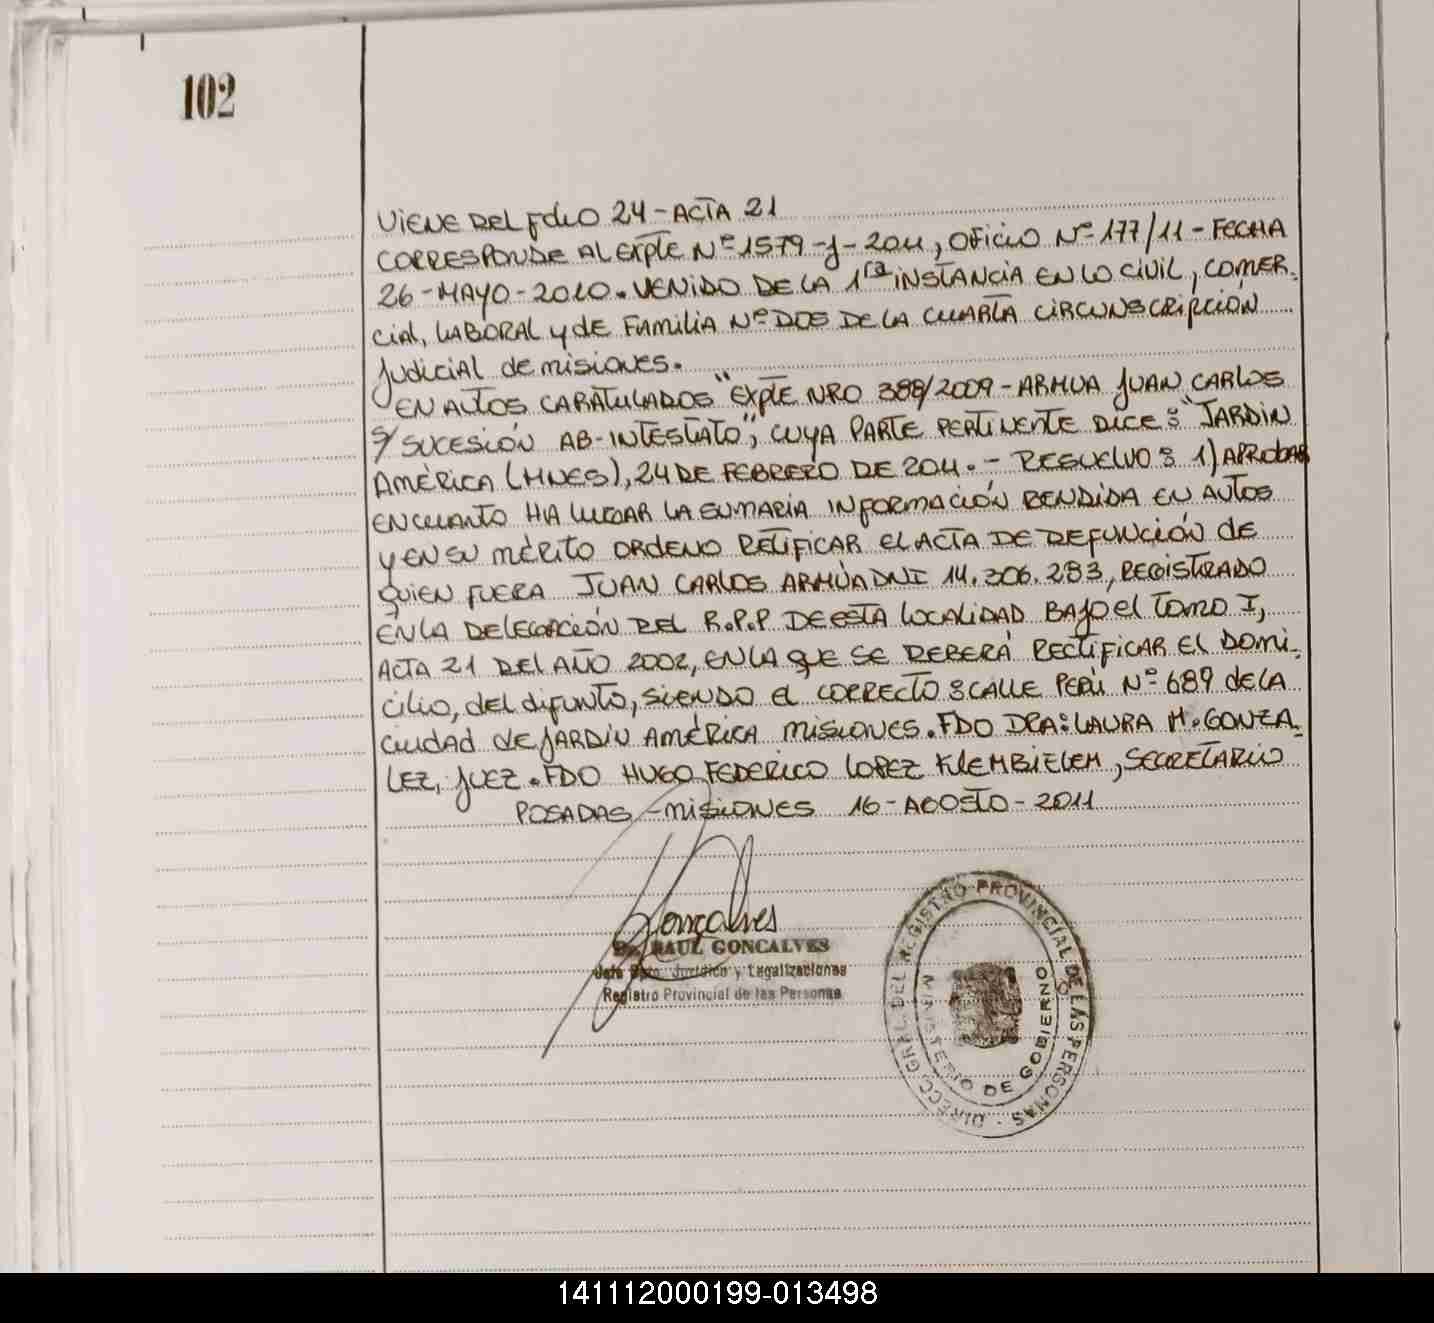 102
VIENE DEL FOLIO 24 - ACTA 21
CORRESPONDE AL EXPTE Nº 1579-J-2011, OFICIO Nº 177/11 - FECHA
26-MAYO-2010. VENIDO DE LA 1ra INSTANCIA EN LO CIVIL, COMER-
CIAL, LABORAL Y DE FAMILIA Nº DOS DE LA CUARTA CIRCUNSCRIPCIÓN
JUDICIAL DE MISIONES.
EN AUTOS CARATULADOS "EXPTE NRO 388/2009 - ARMUA JUAN CARLOS
S/ SUCESIÓN AB-INTESTATO", CUYA PARTE PERTINENTE DICE: "JARDIN
AMÉRICA (MNES), 24 DE FEBRERO DE 2011. - RESUELVO: 1) APROBAR
EN CUANTO HA LUGAR LA SUMARIA INFORMACIÓN RENDIDA EN AUTOS
Y EN SU MÉRITO ORDENO RETIFICAR EL ACTA DE DEFUNCIÓN DE
QUIEN FUERA JUAN CARLOS ARMÚA DNI 14.306.283, REGISTRADO
EN LA DELEGACIÓN DEL R.P.P DE ESTA LOCALIDAD BAJO EL TOMO I,
ACTA 21 DEL AÑO 2002, EN LA QUE SE DEBERÁ RECTIFICAR EL DOMI-
CILIO, DEL DIFUNTO, SIENDO EL CORRECTO: CALLE PERÚ Nº 689 DE LA
CIUDAD DE JARDIN AMÉRICA MISIONES. FDO DRA: LAURA M. GONZA-
LEZ, JUEZ. FDO HUGO FEDERICO LOPEZ KLEMBIELEM, SECRETARIO
POSADAS - MISIONES 16 - AGOSTO - 2011
Gonçalves
Dr. RAUL GONCALVES
Jefe Dpto. Jurídico y Legalizaciones
Registro Provincial de las Personas
DIRECC. GRAL. DEL REGISTRO PROVINCIAL DE LAS PERSONAS -
MINISTERIO DE GOBIERNO
141112000199-013498